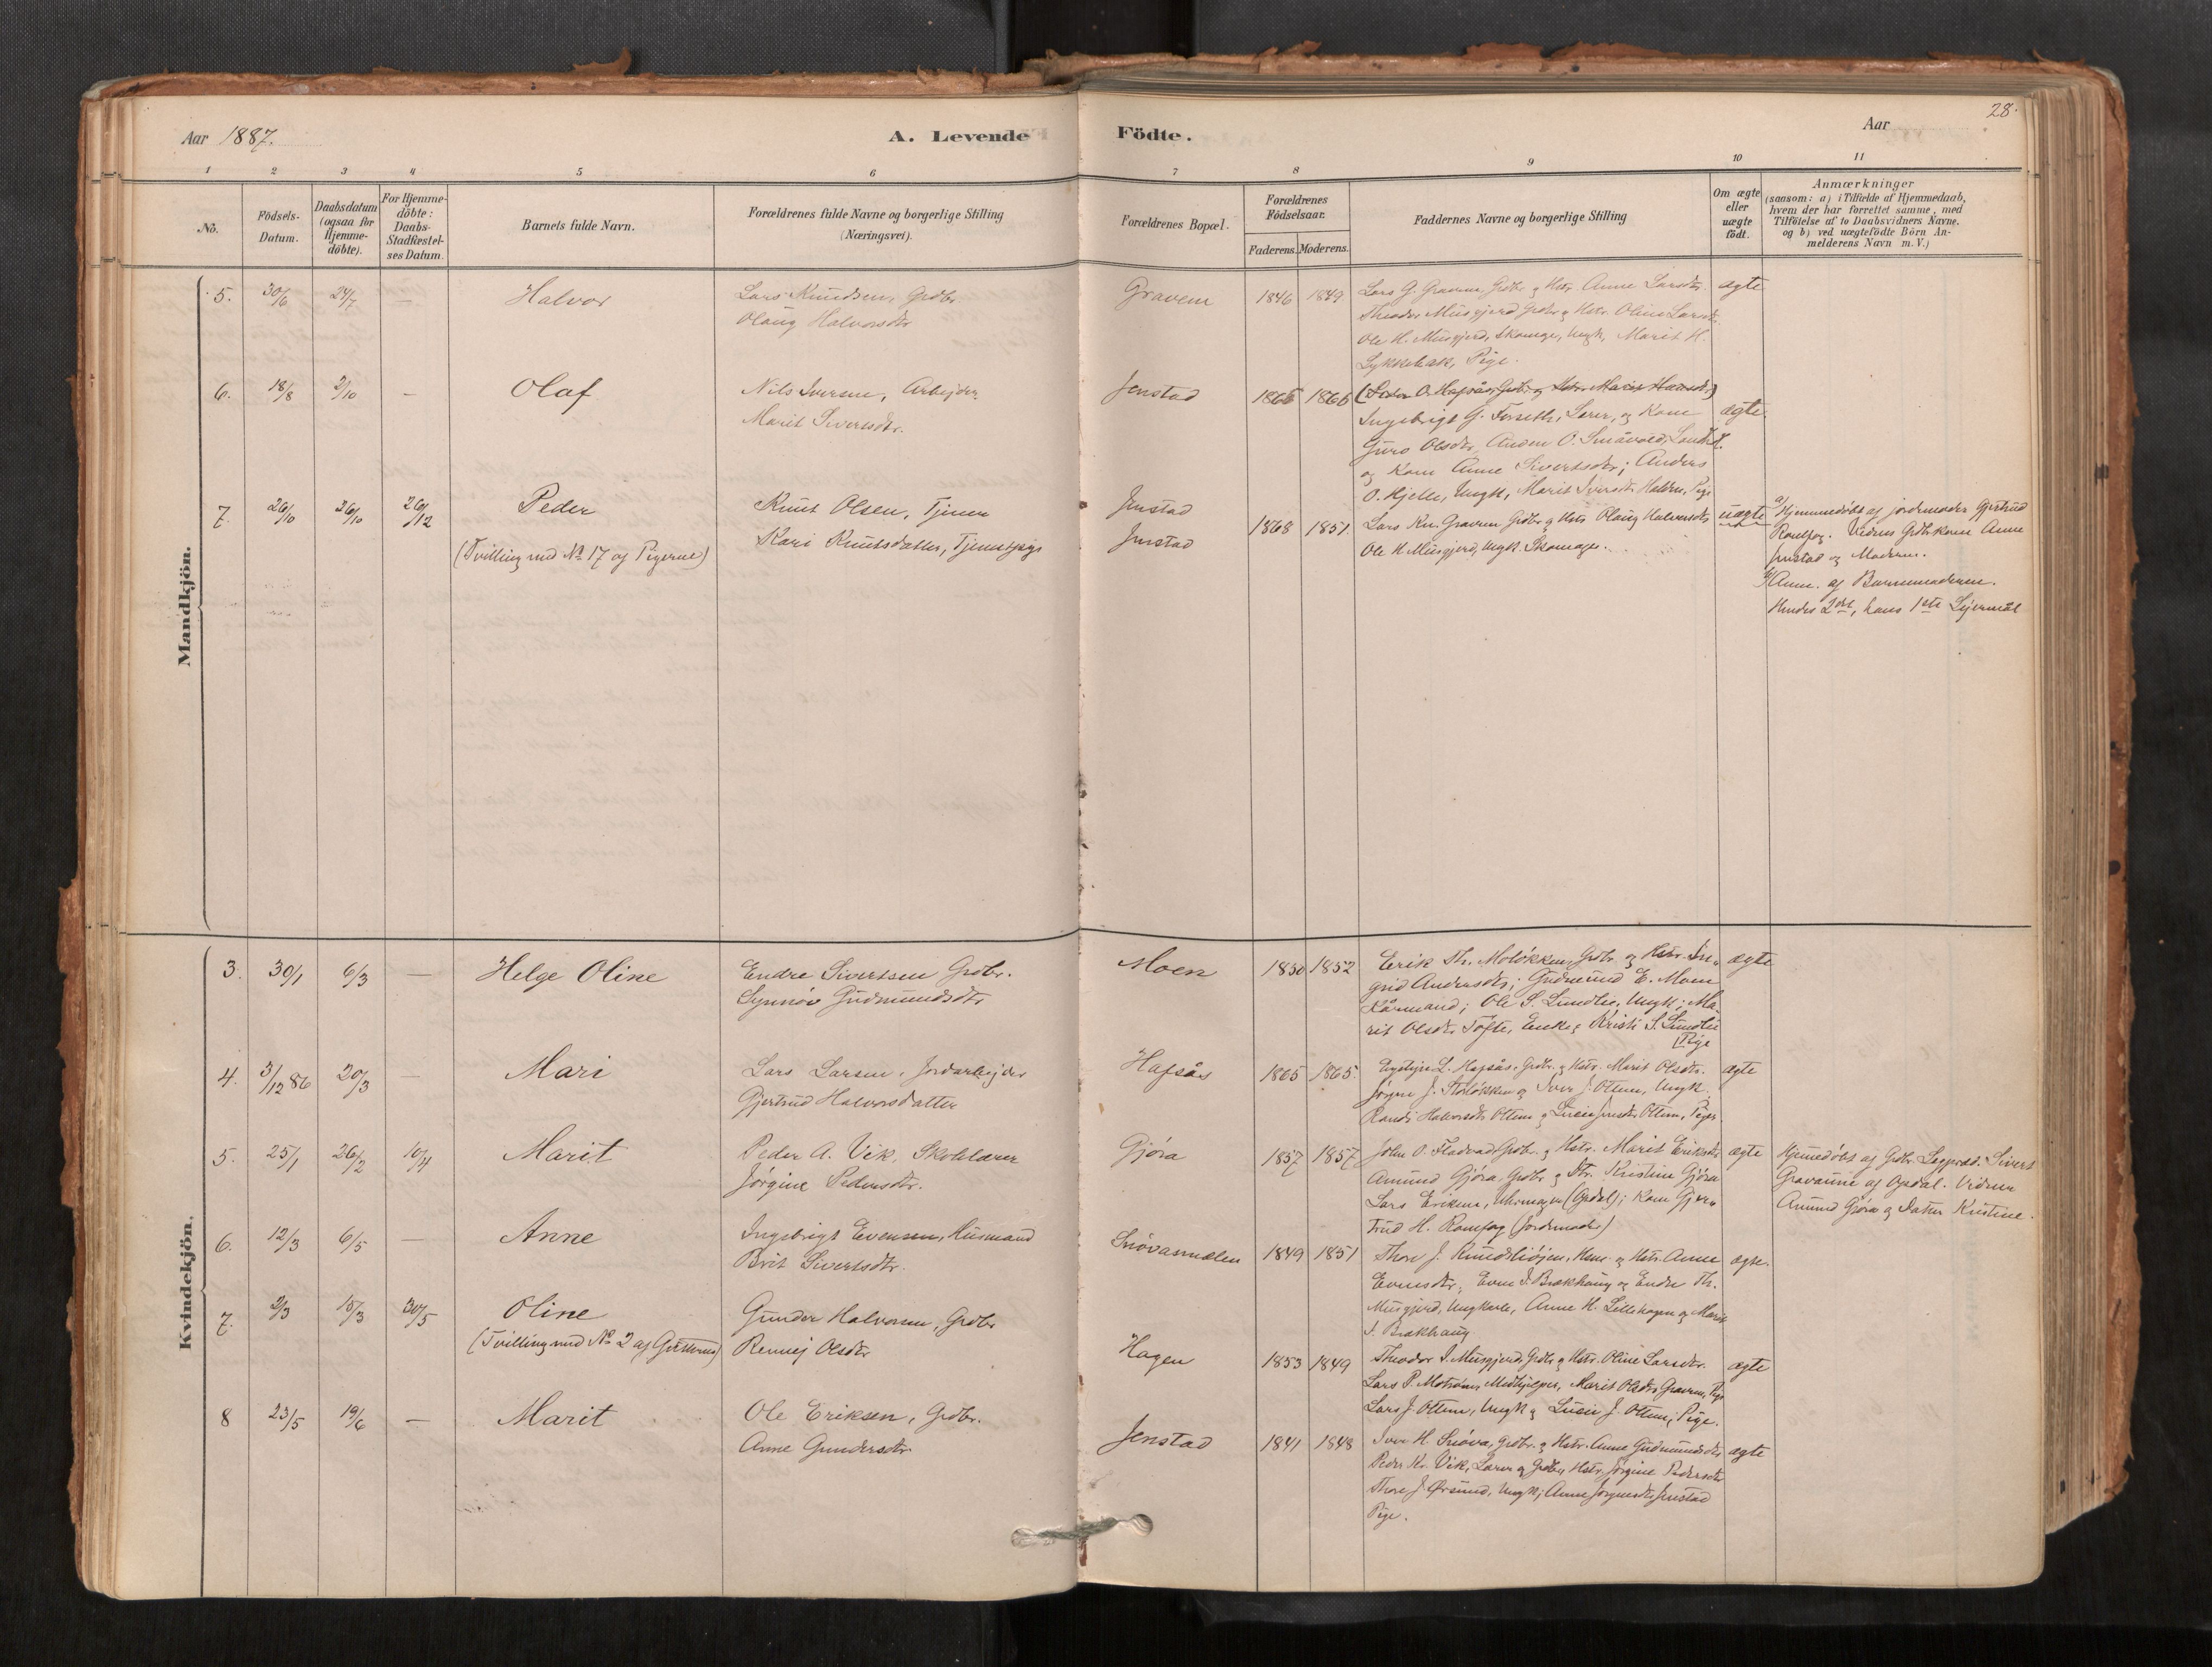 28.
Aar 1887.
A. Levende
Födte.
Aar
1 2 3 4 5 6 7 8 9 10 11
No.
Födsels-
Datum.
Daabsdatum
(ogsaa for
Hjemme-
döbte).
For Hjemme-
döbte:
Daabs-
Stadfæstel-
ses Datum.
Barnets fulde Navn.
Forældrenes fulde Navne og borgerlige Stilling
(Næringsvei).
Forældrenes Bopæl.
Forældrenes
Födselsaar.
Faderens. Moderens.
Faddernes Navne og borgerlige Stilling
Om ægte
eller
uægte
födt.
Anmærkninger
(saasom: a) i Tilfælde af Hjemmedaab,
hvem der har forrettet samme, med
Tilföielse af to Daabsvidners Navne.
og b) ved uægtefödte Börn An-
melderens Navn m.V.)
Mandkjön.
5. 30/6 24/7 —
Halvor
Lars Knudsen, Grdbr.
Olaug Halvorsdtr
Gravem
1846 1849
Lars G. Gravem, Grdbr. og Hstr. Anne Larsdtr.
Theodor Musgjerd Grdbr og Hstr. Oline Larsdtr.
Ole H. Musgjerd, Skomager, Ungk, Marit H.
Lykkebak, Pige.
ægte
6. 18/8 2/10 —
Olaf
Nils Iversen, Arbejder
Marit Sivertsdtr.
Jenstad
1865 1866
(Peder O. Hafsås, Grdbr og Hstr. Marit Hansdtr.)
Ingebrigt G. Forseth, Lærer, og Kone
Guro Olsdtr, O. Småvold, Landh.
og Kone Anne Sivertsdtr; Anders
O. Hjelle, Ungk, Marit Iversdtr Pige
ægte.
7. 26/10 36/10 26/12
Peder
(Tvilling med No 17 af Pigerne)
Knut Olsen, Tjener
Kari Knutsdatter, Tjenestpige
Jenstad
Jenstad
1868 1851.
Lars Kn. Gravem Grdbr og Hstr Olaug Halvorsdtr
Ole H Musgjerd, Ungk. Skomager.
uægte
a) Hjemmedöbt af jordemoder Gjertrud
Romfog. Vidner Grdbrkone Anne
Jenstad og Moderen.
b) Anm. af Barnemoderen.
Hendes 2det, hans 1ste Lejermål
Kvindekjön.
3. 30/1 6/3 —
Helge Oline
Endre Sivertsen Grdbr.
Synnöv Gudmundsdtr
Moen
1850 1852
Erik Th. Molökken, Grdbr. og Hstr. In-
grid Andersdtr; Gudmund E. Moen
Kårmand; Ole S. Lundlie, Ungk; Ma-
rit Olsdtr Tofte, Enke; Kristi S. Lundlie
Pige
ægte
4. 3/12 86 20/3 —
Mari
Lars Larsen, Jordarbejder
Gjertrud Halvorsdatter
Hafsås
1865 1865.
L. Hafsås, Grdbr. og Hstr. Marit Olsdtr.
Jörgen J. Stölökken og Iver J. Ottem, Ungk.
Randi Halvorsdtr Ottem og Lucie Ottem, Piger
ægte
5. 25/1 26/2 10/4
Marit
Peder A. Vik, Skolelærer
Jörgine Pedersdtr.
Gjöra
1857 1857
John O. Fladvad, Grdbr. og Hstr. Marit Eriksdtr
Amund Gjöra, Grdbr og Dtr. Kristine Gjöra
Lars Eriksen, Uhrmager (Opdal); Kone Gjer-
trud H. Romfog (Jordemoder)
ægte
Hjemmedöbt af Grdbr. Lægpræd. Sivert
Gravaune af Opdal. Vidner
Amund Gjöra og Datter Kristine.
6. 12/3 6/5 —
Anne
Ingebrigt Evensen, Husmand
Brit Sivertsdtr.
Snövasmælen
1849 1851
Thore J. Knudsliöjen, Hsm. og Hstr. Anne
Evensdtr; Even I. Brækhaug og Endre Th.
Musgjerd, Ungkarle, Anne H. Lillehagen og Marit
I. Brækhaug
ægte.
7. 2/3 15/3 30/5
Oline
(Tvilling med No 2 af Gutterne)
Gunder Halvorsen, Grdbr
Rennej Olsdtr
Hagen
1853 1849
Theodor I. Musgjerd, Grdbr og Hstr. Oline Larsdtr.
Lars P. Motröen, Medhjelper, Marit Olsdtr Gravem, Pige
Lars J. Ottem, Ungk og Lucie J. Ottem, Pige.
ægte
8 23/5 19/6 —
Marit
Ole Eriksen, Grdbr.
Anne Gundersdtr.
Jenstad
1841 1848
Iver H. Snöva, Grdbr. og Hstr. Anne Gudmundsdtr
Peder Kr. Vik, Lærer og Grdbr, Hstr. Jörgine Pedersdtr
Thore J. Örsund, Ungk; Anne Jörgensdtr Jenstad
Pige.
ægte